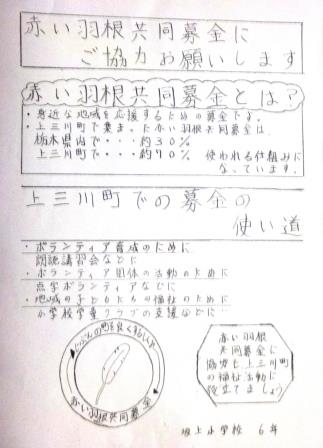 赤い羽根共同募金に
ご協力お願いします
赤い羽根共同募金とは?
・身近な地域を応援するための募金です。
・上三川町で集まった赤い羽根共同募金は、
栃木県内で・・・約30%
上三川町で・・・約70% 使われる仕組みに
なっています。
上三川町での募金の
使い道
・ボランティア育成のために
朗読講習会などに
・ボランティア団体の活動のために
点字ボランティアなどに
・地域の子どもたちの福祉のために
小学校学童クラブの支援などに…
じぶんの町を良くするしくみ
赤い羽根共同募金
赤い羽根
共同募金に
協力し上三川町
の福祉活動に
役立てましょう
坂上小学校 6年